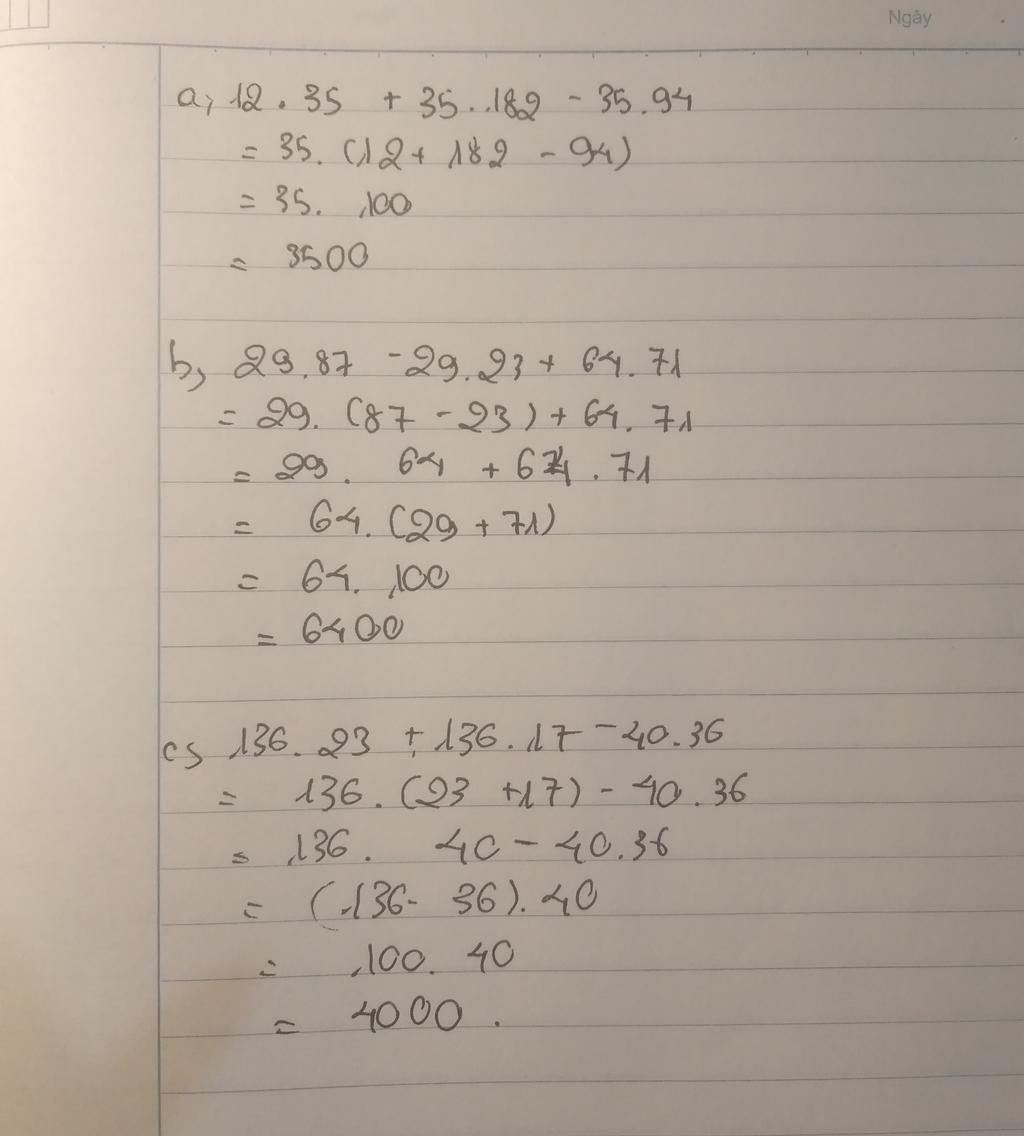 Ngày
a, 12 . 35 + 35 . 182 - 35 . 94
= 35 . (12 + 182 - 94)
= 35 . 100
= 3500
b, 29 . 87 - 29 . 23 + 64 . 71
= 29 . (87 - 23) + 64 . 71
= 29 . 64 + 64 . 71
= 64 . (29 + 71)
= 64 . 100
= 6400
c, 136 . 23 + 136 . 17 - 40 . 36
= 136 . (23 + 17) - 40 . 36
= 136 . 40 - 40 . 36
= (136 - 36) . 40
= 100 . 40
= 4000 .